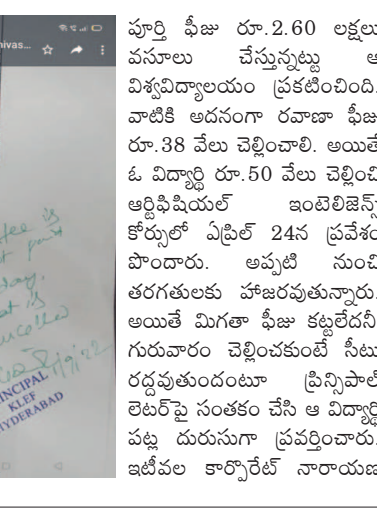 nivas...
పూర్తి ఫీజు రూ.2.60 లక్షలు
వసూలు చేస్తున్నట్టు ఆ
విశ్వవిద్యాలయం ప్రకటించింది.
వాటికి అదనంగా రవాణా ఫీజు
రూ.38 వేలు చెల్లించాలి. అయితే
ఓ విద్యార్థి రూ.50 వేలు చెల్లించి
ఆర్టిఫిషియల్ ఇంటెలిజెన్స్
కోర్సులో ఏప్రిల్ 24న ప్రవేశం
పొందారు. అప్పటి నుంచి
తరగతులకు హాజరవుతున్నారు.
అయితే మిగతా ఫీజు కట్టలేదనీ,
గురువారం చెల్లించకుంటే సీటు
రద్దవుతుందంటూ ప్రిన్సిపాల్
లెటర్‌పై సంతకం చేసి ఆ విద్యార్థి
పట్ల దురుసుగా ప్రవర్తించారు.
ఇటీవల కార్పొరేట్ నారాయణ
fee is
INCIPAL
KLEF
HYDERABAD